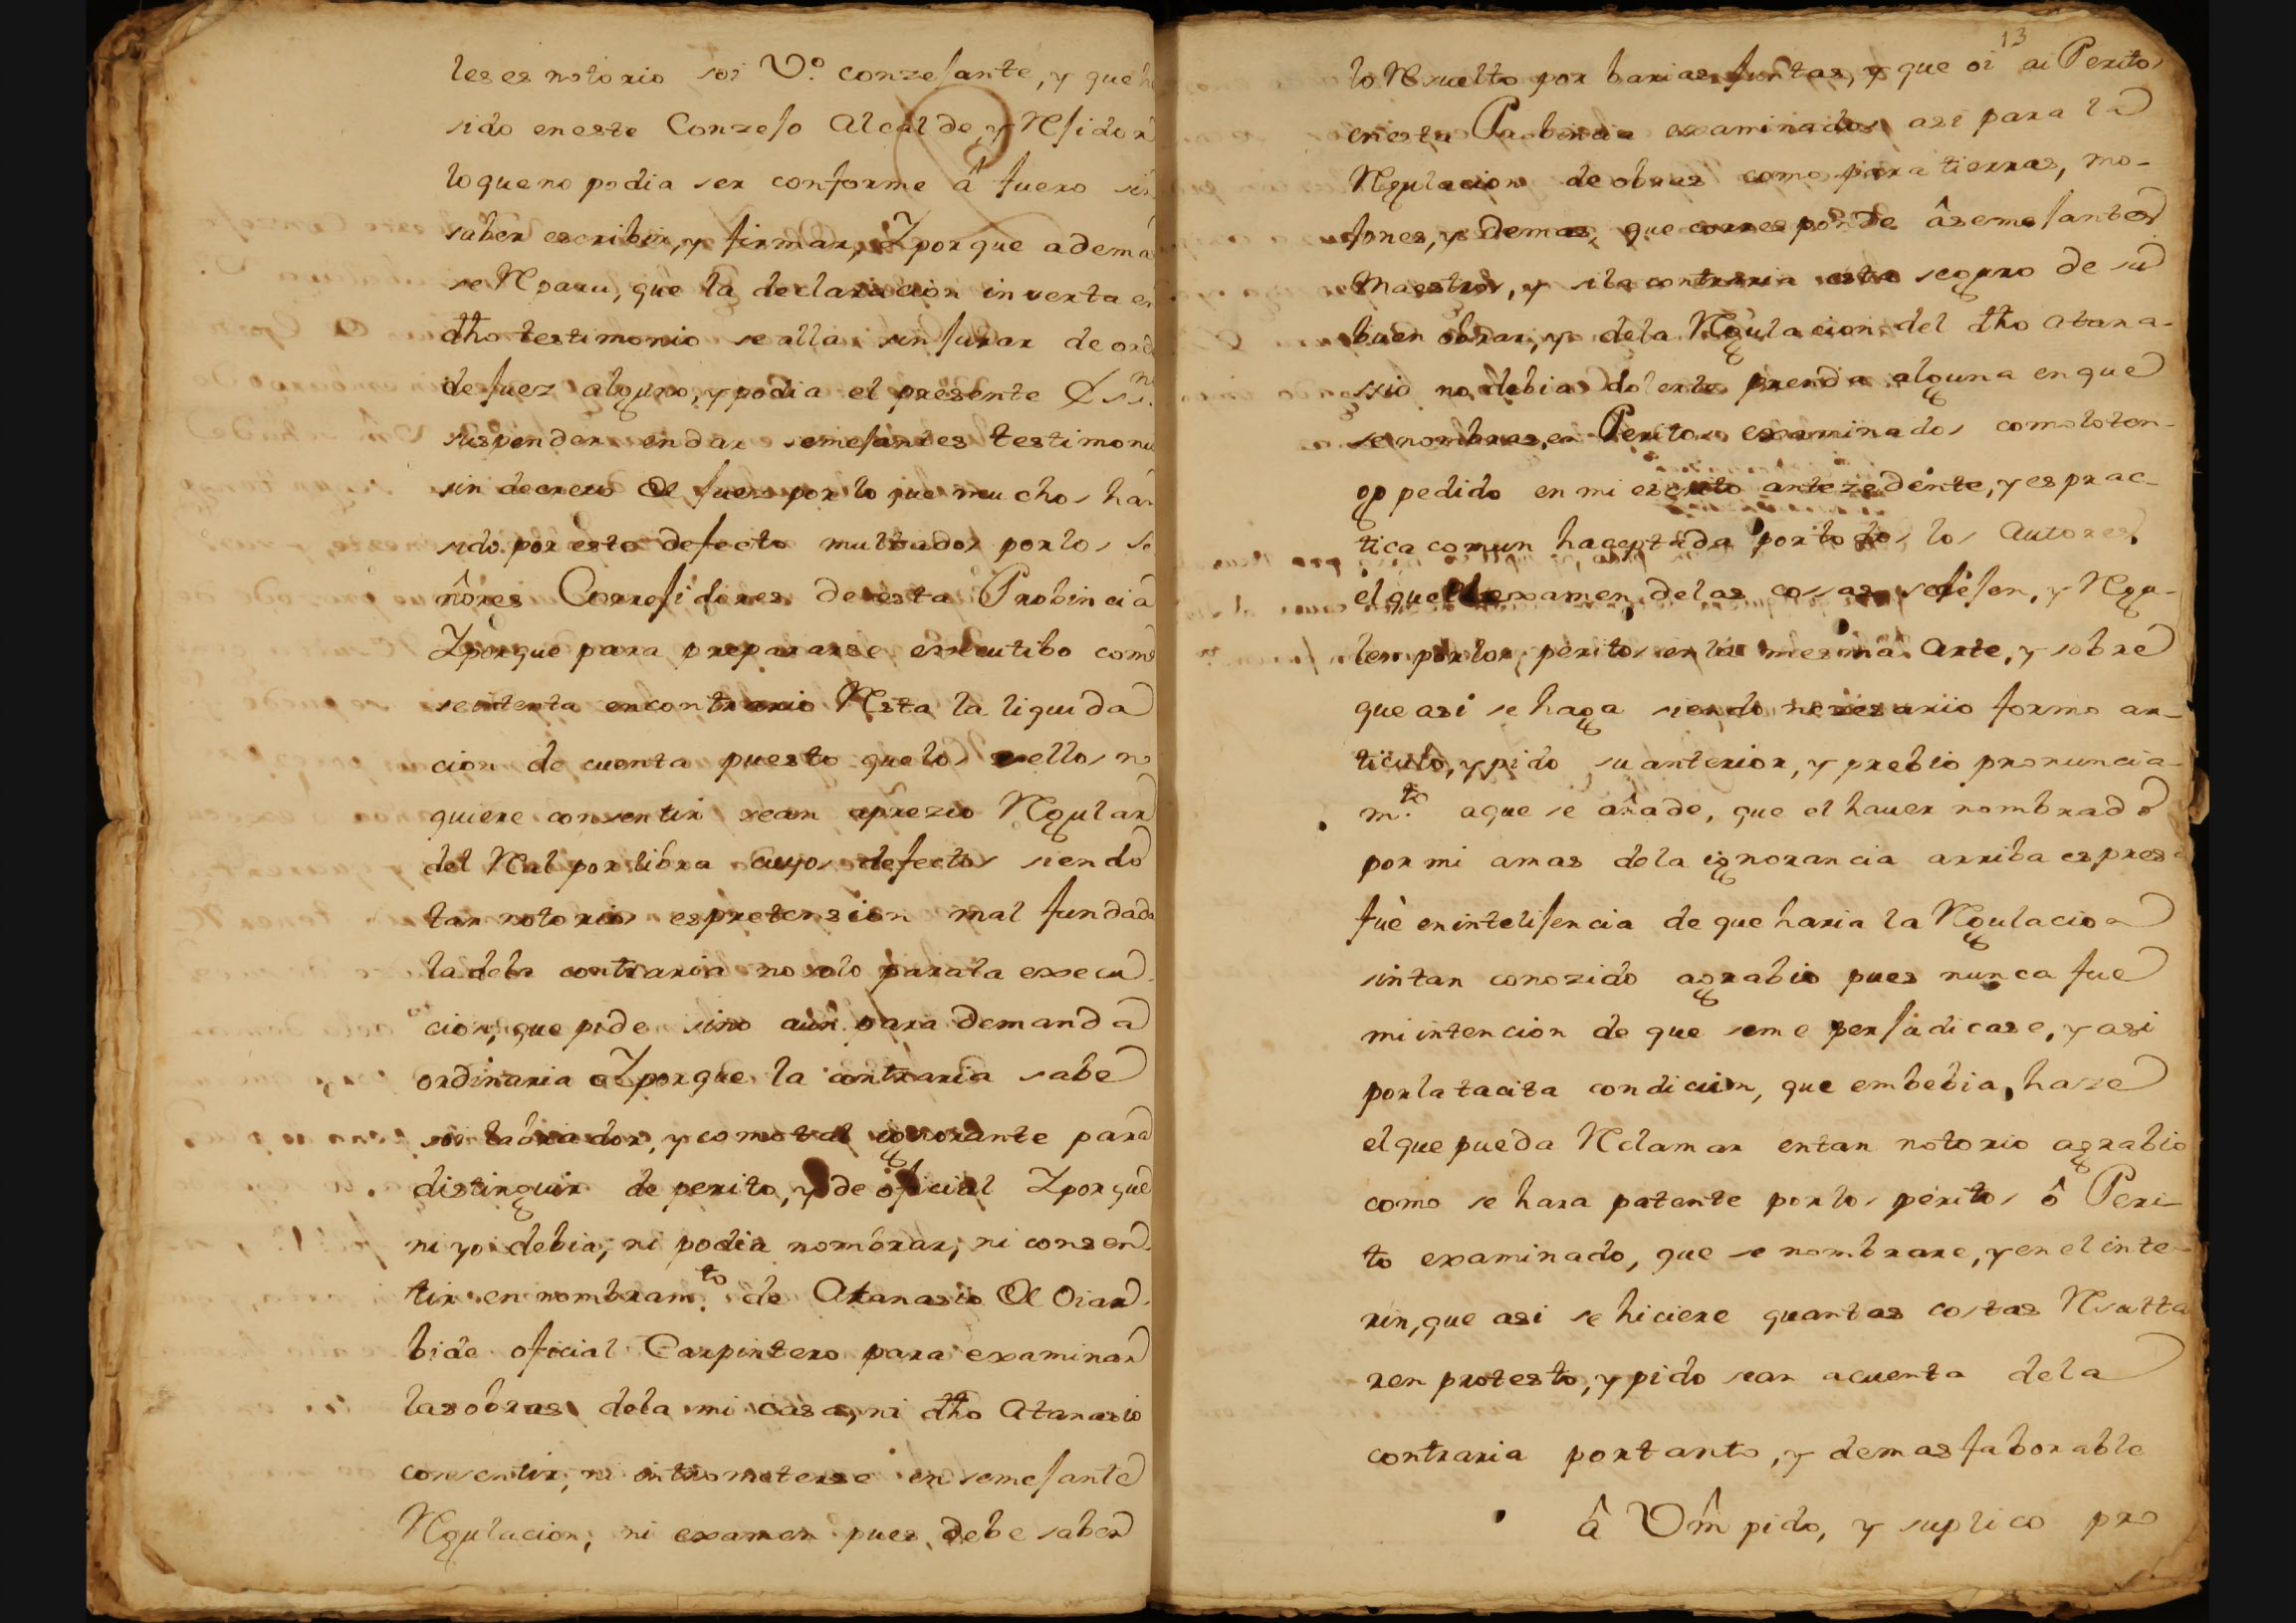 les es notorio soi V.º conzejante, y que ha
sido en este Conzejo Alcalde, y Rejidor
lo que no podia ser conforme â fuero sin
saber escribir, y firmar, Y porque adema
se Repara, que la declaracion inxerta en
dho testimonio se alla sin jurar de orde
de juez alguno, y podia el presente Ess.no
suspender en dar semejantes testimoniu
sin decreto de juez por lo que muchos han
sido por esto defecto multados por los se
ñores Correjidores de esta Probincia
Y porque para prepararse executibo como
se intenta en contrario Resta la liquida
cion de cuenta puesto que los sellos no
quiere consentir sean a prezio Regular
del Real por libra cuyos defectos siendo
tan notorios es pretension mal fundada
la dela contraria no solo para la execu
cion, que pide sino aun para demanda
ordinaria Y porque la contraria sabe
soi labrador, y como tal ignorante para
distinguir de perito, y de oficial Y porque
ni yo debia, ni podia nombrar, ni consen
tir en nombram.to de Atanasio de Oiar
bide oficial Carpintero para examinar
las obras dela mi casa, ni dho Atanasio
consentir, ni entrometerse en semejante
Regulacion, ni examen pues debe saber
13
lo Resuelto por barias juntas, y que oi ai Peritos
en esta Probincia examinados asi para la
Regulacion de obras como para tierras, mo-
jones, y demas, que corresponde â semejantes
Maestros, y si la contraria esta seguro de su
buen obrar, y dela Regulacion del dho Atana-
sio no debia dolerle prenda alguna en que
se nombrasen Peritos examinados como lo ten-
go pedido en mi escrito antezedente, y es prac-
tica comun haceptada por todos los Autores,
el que el examen de las cosas se dejen, y Regu-
len por los peritos en la mesma Arte, y sobre
que asi se haga siendo nezesariio formo ar-
ticulo, y pido su anterior, y prebio pronuncia-
m.to a que se añade, que el hauer nombrado
por mi a mas dela ignorancia arriba espresa
fuè en intelijencia de que haria la Regulacion
sin tan conozido agrabio pues nunca fue
mi intencion de que se me perjudicase, y asi
por la tacita condicion, que embebia, haze
el que pueda Reclamar en tan notorio agrabio
como se hara patente por los peritos ô Peri-
to examinado, que se nombrare, y en el inte-
rin, que asi se hiciere quantas costas Resulta
ren protesto, y pido sean a cuenta dela
contraria por tanto, y demas faborable
â Vm̂ pido, y suplico pro